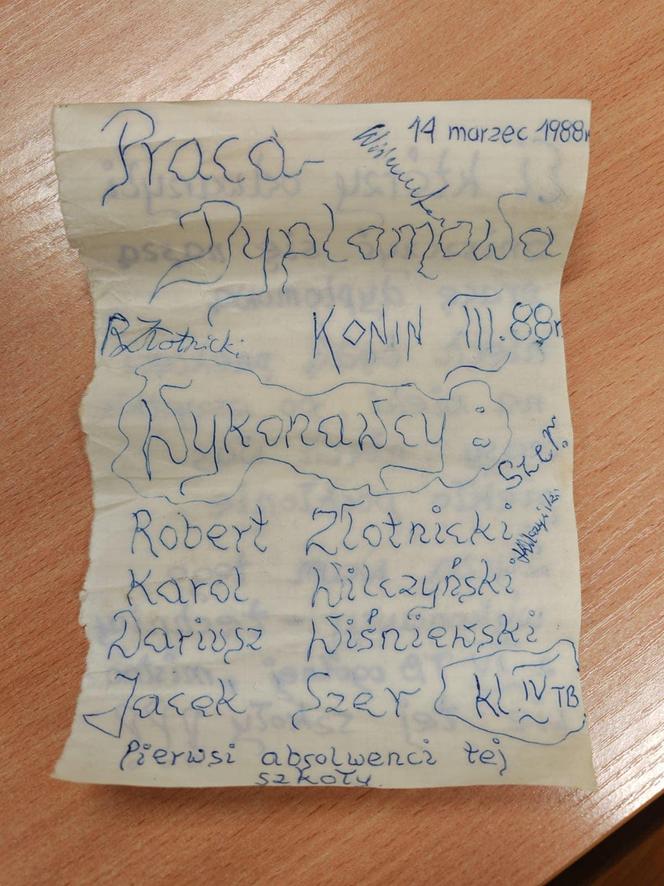 14 marzec 1988r
Praca
Dyplomowa
R. Złotnicki
KONIN III.88r
Wykonawcy:
Szer.
Robert Złotnicki
Karol Wilczyński
Dariusz Wiśniewski
Jacek Szer kl. IV TB
Pierwsi absolwenci tej
szkoły.